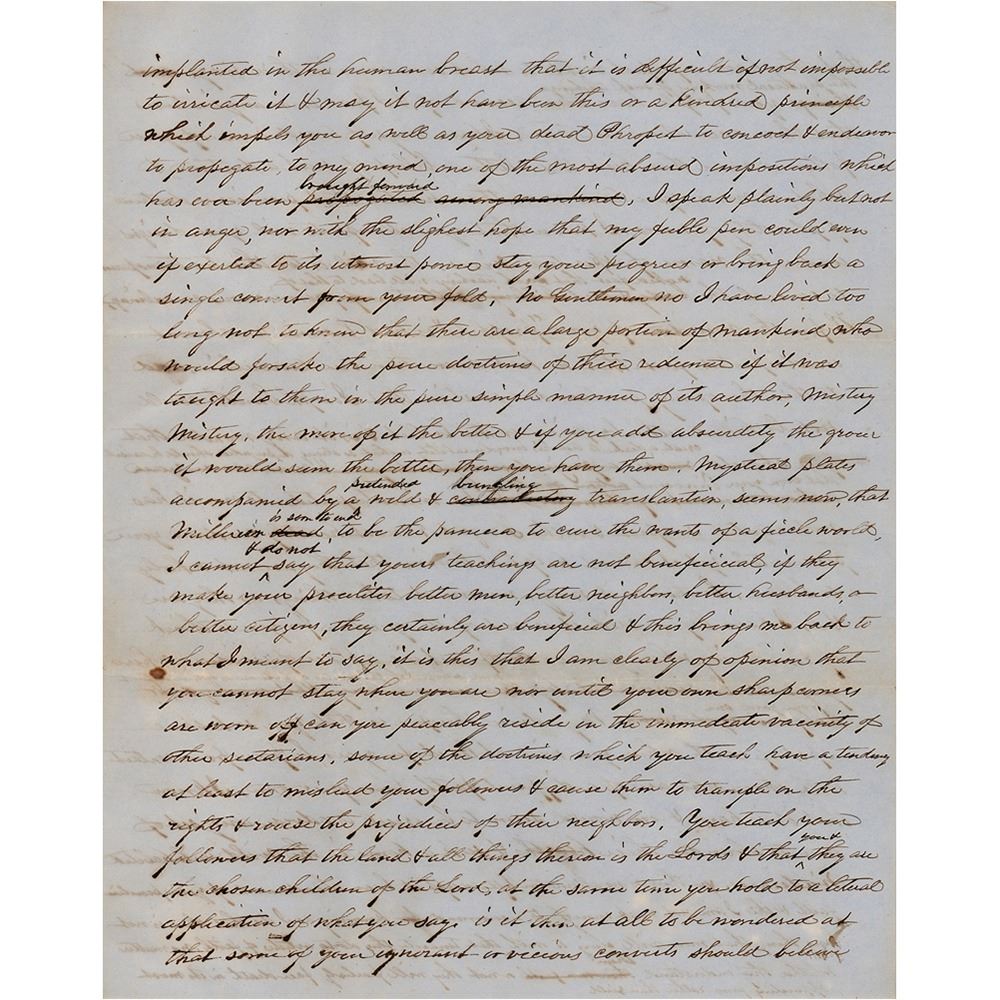 implanted in the human breast that it is difficult if not impossible
to irricate it & may it not have been this or a kindred principle
which impels you as well as your dead Phropet to concoct & endeavor
to propegate, to my mind, one of the most absurd impositions which
brought forward
has ever been propogated among mankind, I speak plainly but not
in anger, nor with the slighest hope that my feble pen could even
if exerted to its utmost power stay your progress or bring back a
single convert from your fold, No Gentlemen no I have lived too
long not to know that there are a large portion of mankind who
would forsake the pure doctrins of thier redeemer if it was
taught to them in the pure simple manner of its author, Mistery
Mistery, the more of it the better & if you add absurdety the grocer
it would seem the better, then you have them. Mystical plates
pretended bungling
accompanied by a wild & contradictory translantion, seems now, that
is som to end
Millerism dead, to be the panecea to cure the wants of a ficcle world,
& do not
I cannot ^ say that your teachings are not beneficicial, if they
make your procelites better men, better neighbors, better husbands, or
better citizens, they certainly are beneficial & this brings me back to
what I meant to say, it is this that I am clearly of opinion that
you cannot stay where you are nor until your own sharp corners
are worn off can you peaceably reside in the immedeate vacinity of
other sectarians, some of the doctrines which you teach have a tendency
at least to mislead your followers & cause them to trample on the
rights & rouse the prejudices of thier neighbors. You teach your
you &
followers that the land & all things theron is the Lords & that ^ they are
the chosen children of the Lord, at the same time you hold to a litual
application of what you say is it then at all to be wondered at
that some of your ignorant or vicious converts should beleive